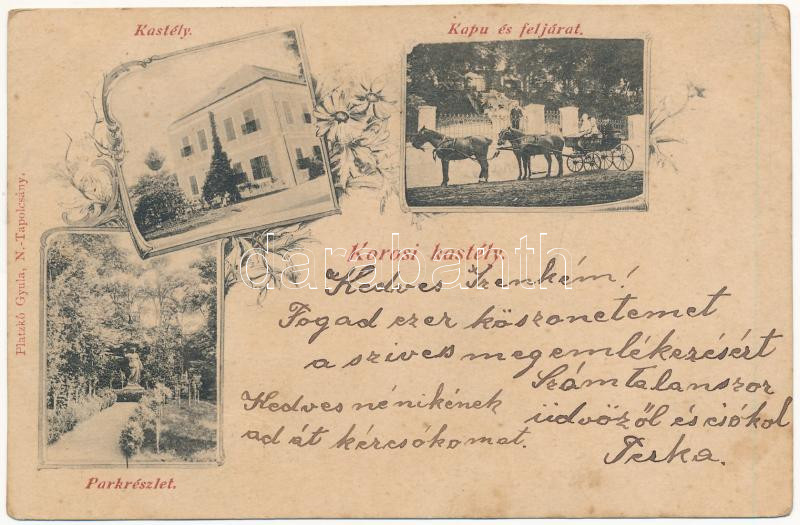 Kastély.
Kapu és feljárat.
Platzkó Gyula, N.-Tapolcsány.
Korosi kastély.
darabanth
Kedves Irenkém!
Fogad ezer köszonetemet
a szives megemlékezésért
Számtalanszor
üdvözöl és csókol
Terka.
Kedves nénikének
ad át kézcsókomat.
Parkrészlet.